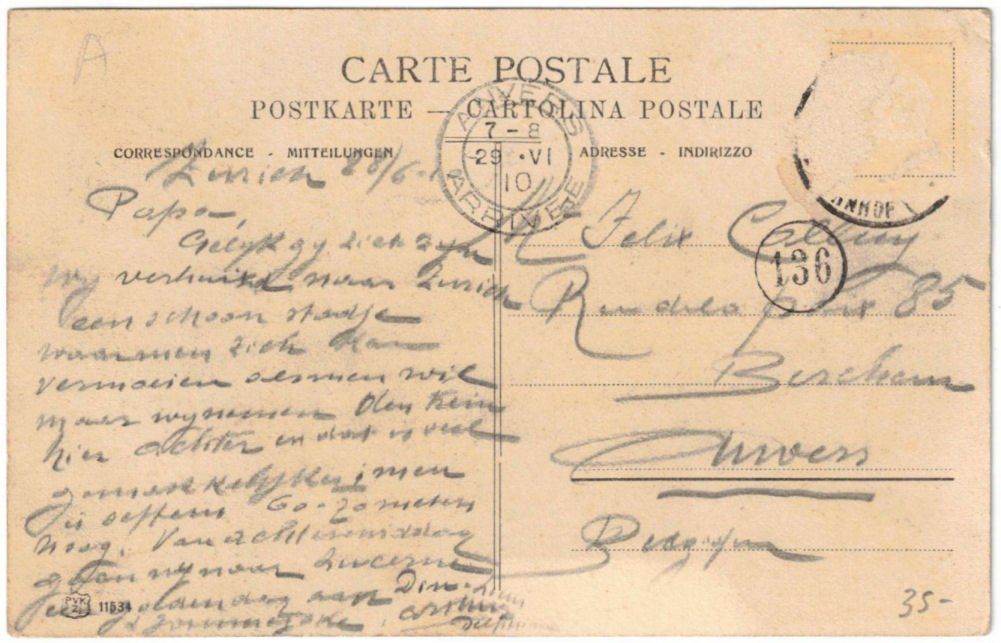 A
CARTE POSTALE
POSTKARTE — CARTOLINA POSTALE
CORRESPONDANCE - MITTEILUNGEN
ADRESSE - INDIRIZZO
ANVERS
7-8
29 VI
10
ARRIVÉE
NHOF
136
Zurich 28/6
Papa,
Gelyk gy ziet zyn
wy verhuisd naar Zurich
een schoon stadje
waar men zich kan
vermoeien als men wil
maar wy nemen den trein
hier achter en dat is veel
gemakkelyker, men
is seffens 60 meters
hoog. Van achtermiddag
gaan wy naar Lucerne
een goedendag aan
Den
Felix
85
Berchem
Anvers
Belgique
PVK
Z
11534
35-